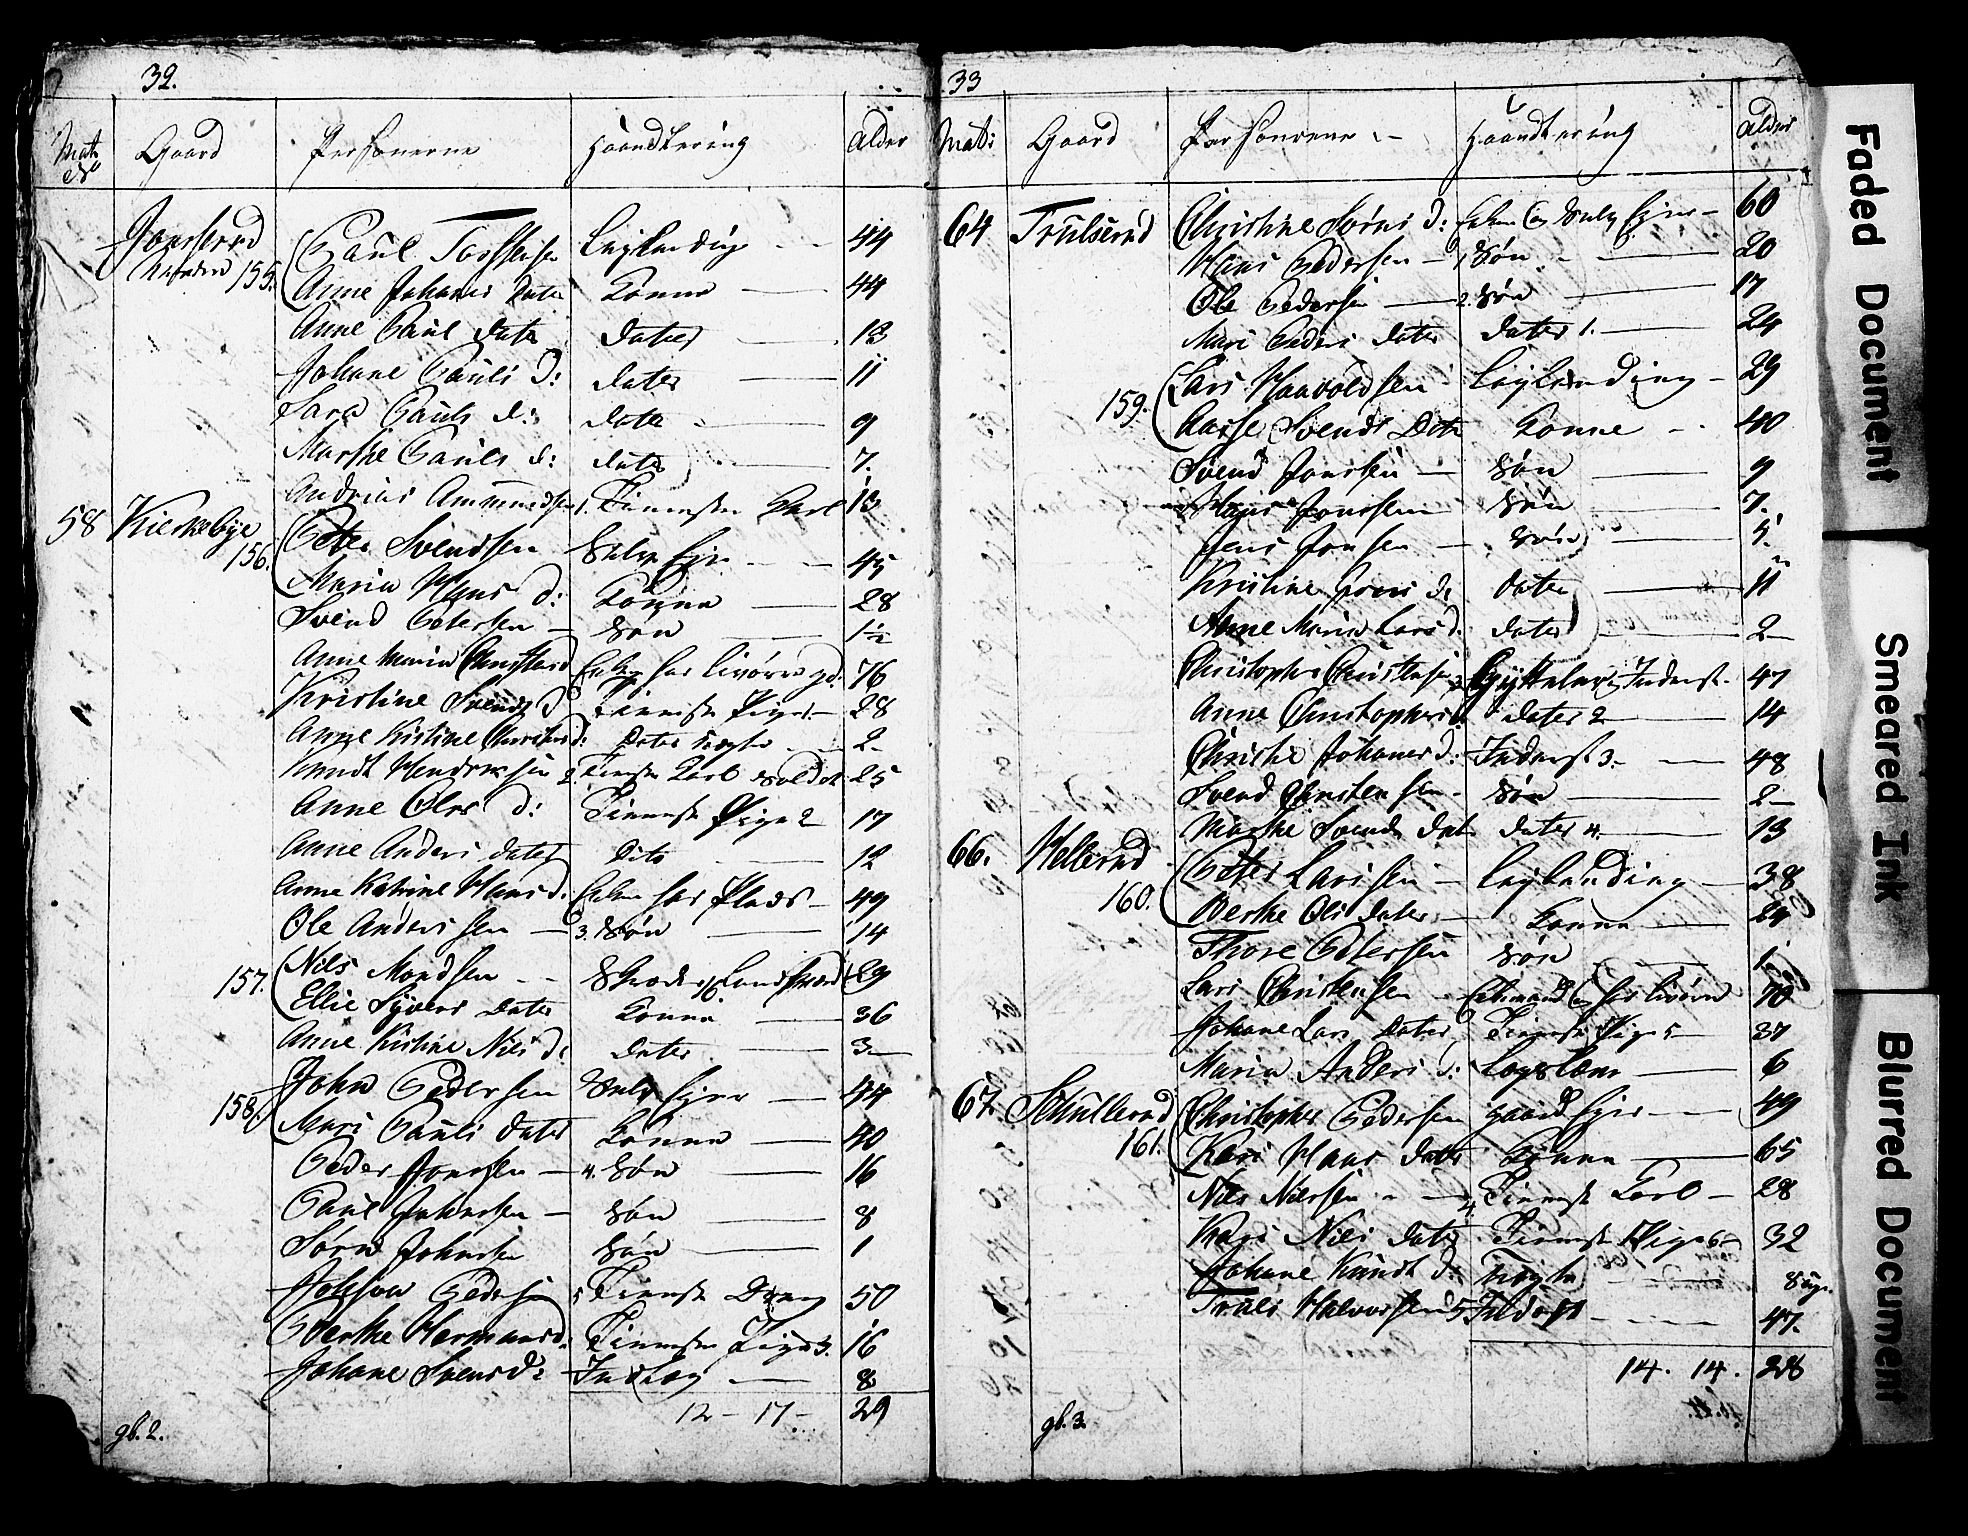 32.
Mats No Gaard Personerne Haandtering Alder
Jonsrud
155. Paul Torstensen Leylending 44
Anne Johanes Dater Konne 44
Anne Paul dater dater 13
Johane Pauls d: dater 11
Sara Pauls d: date 9
Marthe Pauls d: dater 7.
Andreas Ammundsen 1. Tieneste Karl 13
58 Kierkebye
156. Peter Svendsen Selv Ejer 45
Maria Hans d: Konne 28
Svend Petersen Søn 1½
Anne Maria Enke har livøre 76
Kristine Svends d Tieneste Pige 1. 28
Anne Kistine d: Dater 2
Knudt Hendriksen 2 Tieneste Karl Soldat 25
Anne Oles d: Tieneste Pige 2 17
Anne Anders dater Dito 12
Anne Katrine Hans d: Enke har Plads 49
Ole Andersen 3. Søn 14
157. Nils Mondsen 29
Ellie Syvers Dater Konne 36
Anne Kistine Nils d: dater 3
158. John Pedersen Selv Ejer 44
Mari Pauls dater Konne 40
Peder Jonsen 4. Søn 16
Paul Johnsen Søn 8
Sørn Johnsen Søn 1
Johan Pedersen 5 Tieneste Dreng 50
Berthe Hermans d. Tieneste Pige 3. 16
Johane Svens d: 8
12 - 17 - 29
gb. 2.
33
Mats: Gaard Personerne Haandtering Alder
64 Trulserud Christine Sørns d: Enke og Selv Ejer 60
Hans Pedersen 1 Søn 20
Ole Pedersen 2 Søn 17
Mari Peders dater dater 1. 24
159. Lars Haavoldsen Leylending 29
Aasse Svends Dater Konne 40
Svend Jonsen Søn 9
Hans Jonsen Søn 7.
Jens Jonsen Søn 5.
Kristine Jons d: dater 11
Anne Maria Lars d. dater 2
Christopher Christensen Inderst 47
Anne Christophers d. dater 2 14
Christie Johanes d: Inderst 3. 48
Svend Christensen Søn 2
Marthe Svends dat dater 4. 13
66. Hellerud
160. Peter Larsen Leylending 38
Berthe Ols Dater Konne 24
Thore Petersen Søn 1
Lars Christensen Enkemand og har livøre 70
Johane Lars Dater Tieneste Pige 5 37
Maria Anders d: Legslem 6
67. Skullerud Christopher Pedersen gaard Ejer 49
161. Kari Hans dater Konne 65
Nils Nilssen 4. Tieneste Karl 28
Kari Nils dater Tieneste Pige 6 32
Johane Knudt d: 8
Truls Halvorsen 5 Inderst 47.
14. 14. 28
gb. 3.
Faded Document
Smeared Ink
Blurred Document